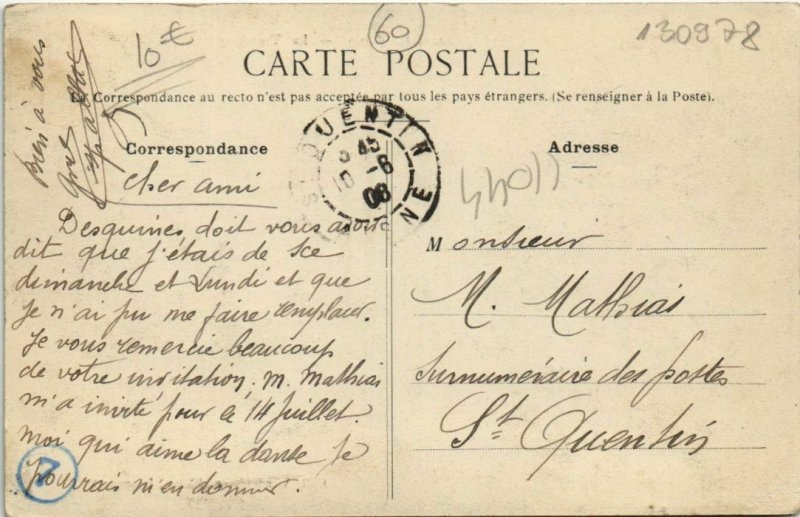 60
130978
10 €
CARTE POSTALE
La Correspondance au recto n'est pas acceptée par tous les pays étrangers. (Se renseigner à la Poste).
Correspondance
Cher ami
Desguines doit vous avoir
dit que j'étais de sce
dimanche et Lundi et que
je n'ai pu me faire remplacer.
Je vous remercie beaucoup
de votre invitation. M. Mathias
m'a invité pour le 14 Juillet.
moi qui aime la danse je
pourrais m'en donner.
Bien à vous
QUENTIN
45
10 -6
08
NE
Adresse
44011
Monsieur
M. Mathias
Surnuméraire des postes
St Quentin